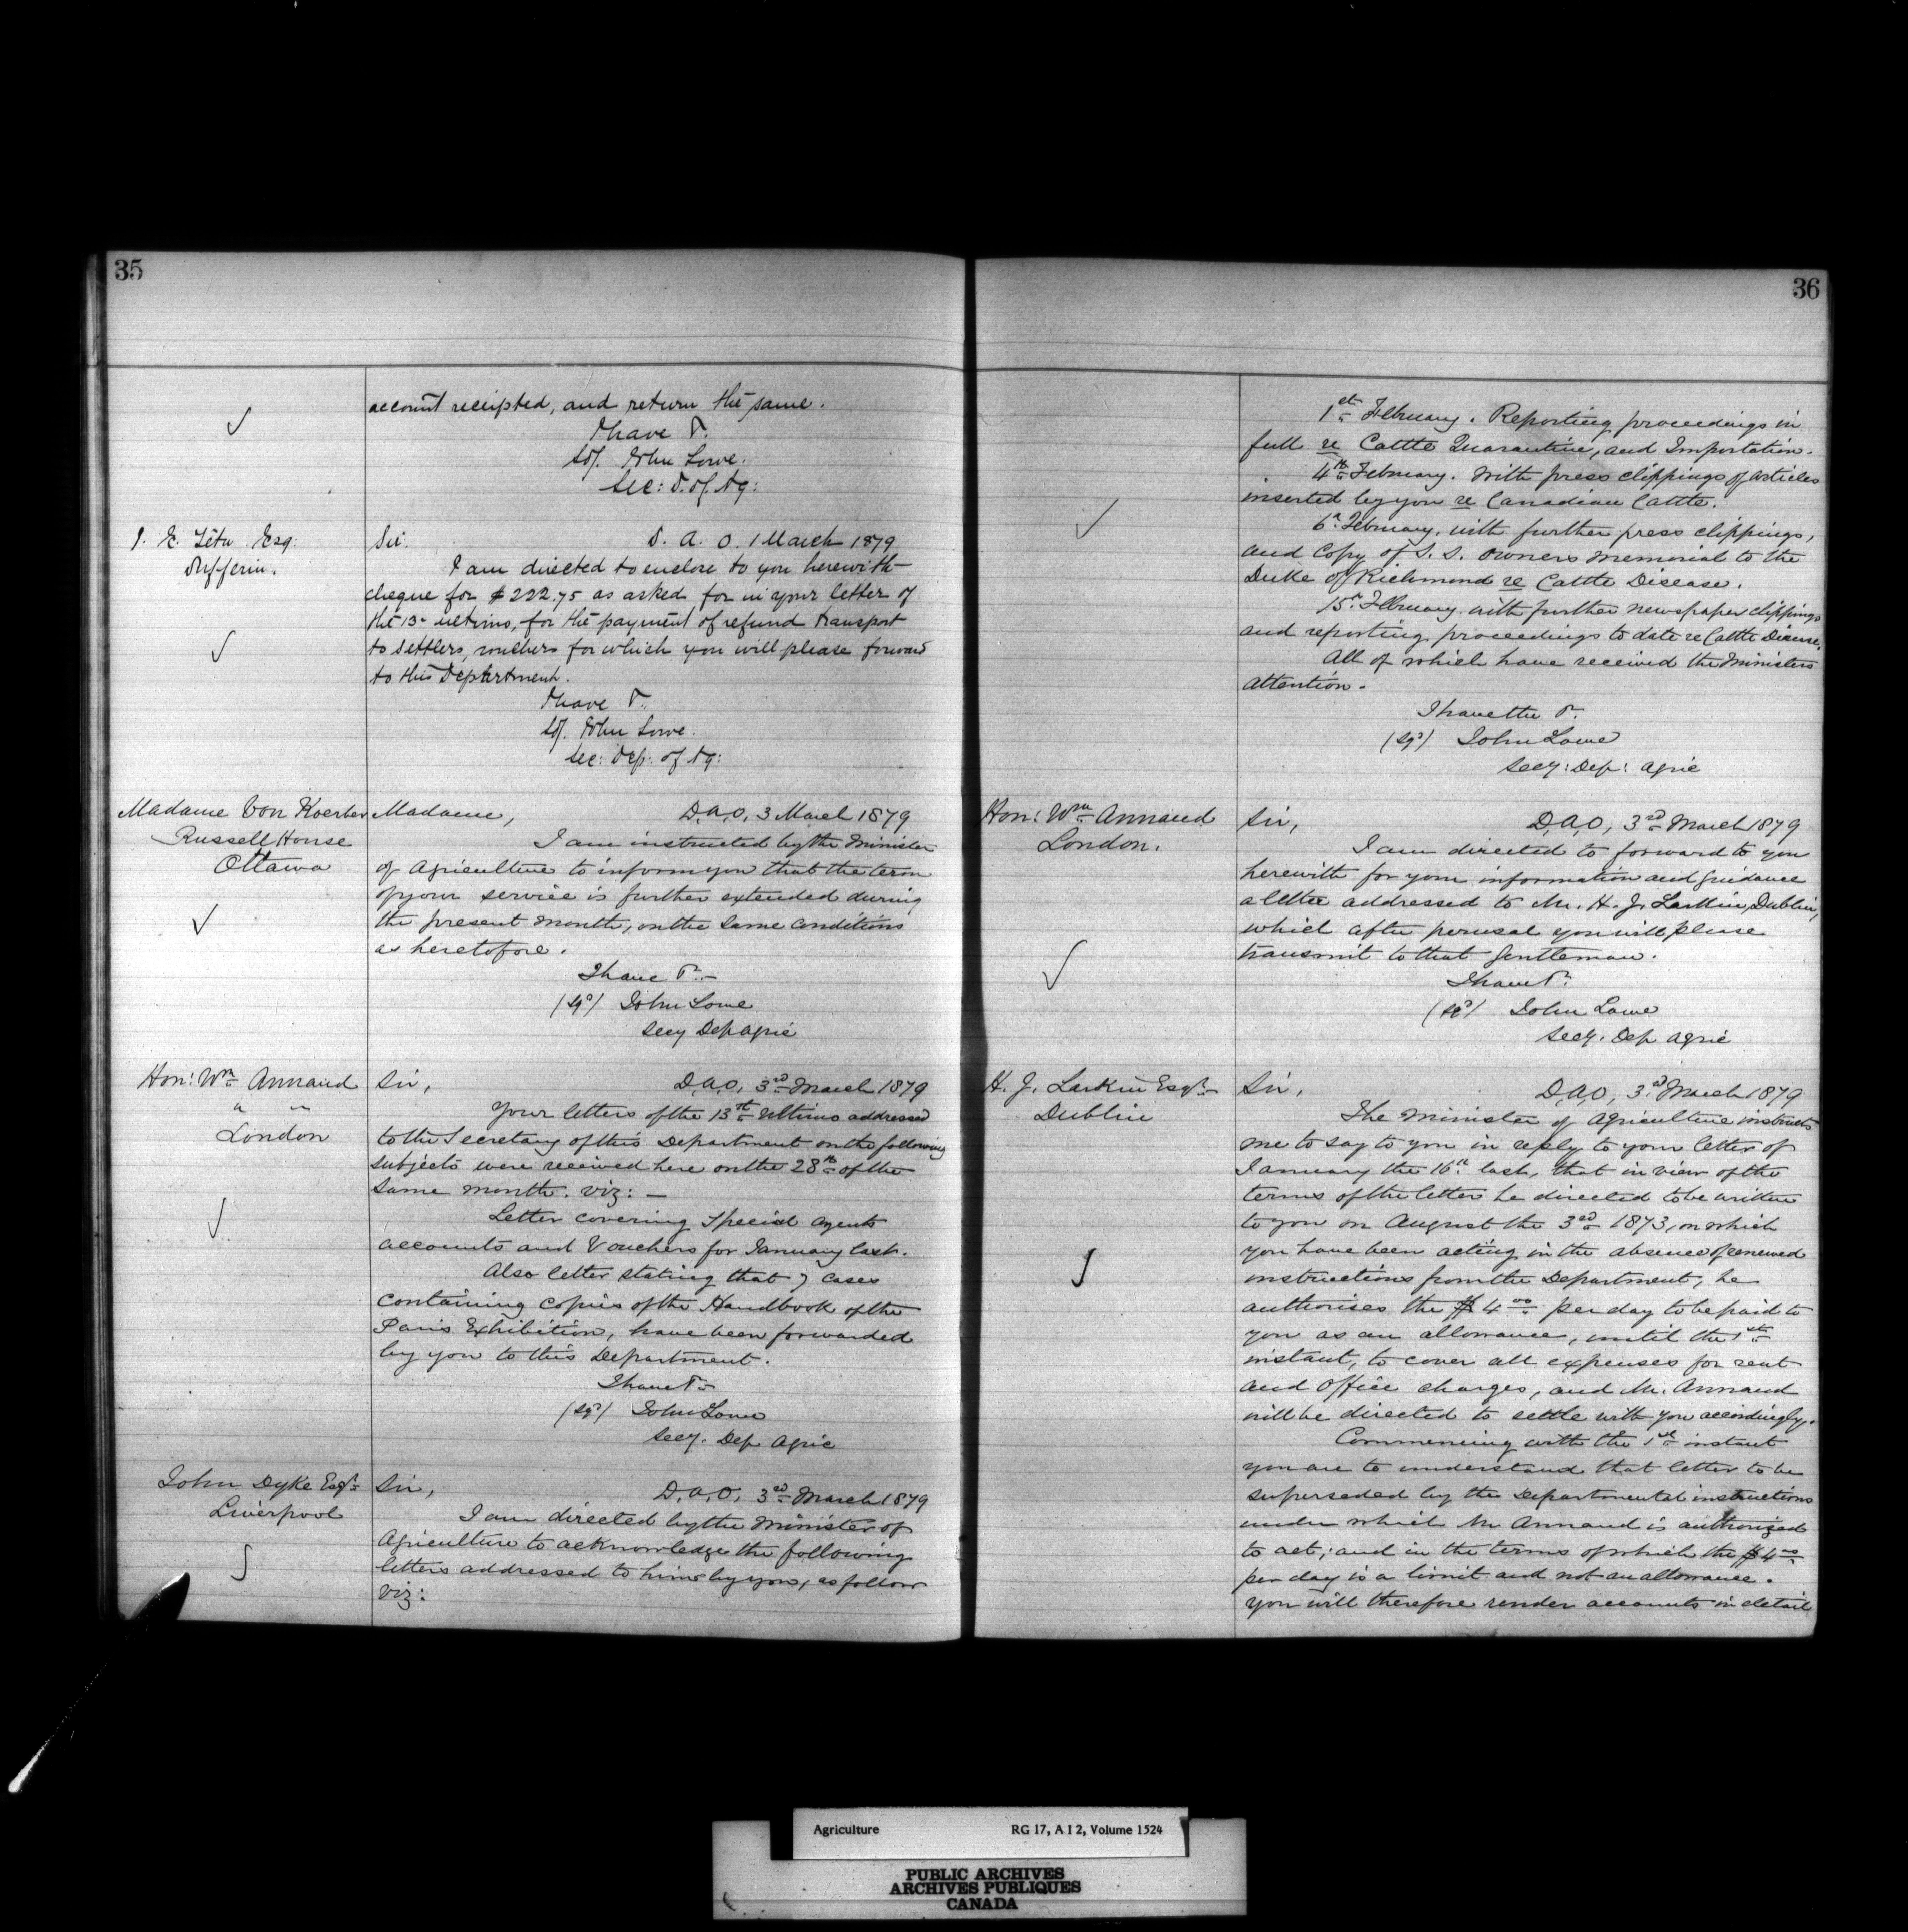 35
account receipted, and return the same.
I have &.
Sd/. John Lowe.
Sec: D. of Ag:
J. E. Têtu Esq:
Dufferin.
Sir. D. A. O. 1 March 1879
I am directed to enclose to you herewith
cheque for $222.75 as asked for in your letter of
the 13- ultimo, for the payment of refund transport
to settlers, vouchers for which you will please forward
to this Department.
I have &.
Sd/. John Lowe.
Sec: Dep: of Ag:
Madame Von Koerber
Russell House
Ottawa
Madame, D,A,O, 3 March 1879
I am instructed by the Minister
of Agriculture to inform you that the term
of your service is further extended during
the present month, on the same conditions
as heretofore.
I have &-
(sgd) John Lowe
Secy Dep Agric
Hon: Wm Annand
" "
London
Sir, D,A,O, 3rd March 1879
Your letters of the 13th ultimo addressed
to the Secretary of this Department on the following
subjects were received here on the 28th of the
same month. viz: -
Letter covering Special Agents
accounts and Vouchers for January last.
Also letter stating that 7 cases
containing copies of the Handbook of the
Paris Exhibition, have been forwarded
by you to this Department.
I have &-
(sgd) John Lowe
Secy. Dep Agric
John Dyke Esqr
Liverpool
Sir, D,A,O, 3rd March 1879
I am directed by the Minister of
Agriculture to acknowledge the following
letters addressed to him by you, as follow
viz:
36
1st February. Reporting proceedings in
full re Cattle Quarantine, and Importation.
4th February. With press clippings of articles
inserted by you re Canadian Cattle.
6th February, with further press clippings,
and Copy of S. S. owners memorial to the
Duke of Richmond re Cattle Disease.
15th February with further newspaper clippings
and reporting proceedings to date re Cattle Disease.
All of which have received the Ministers
attention.
I have the &.
(sgd) John Lowe
Secy: Dep: Agric
Hon: Wm Annand
London.
Sir, D,A,O, 3rd March 1879
I am directed to forward to you
herewith for your information and guidance
a letter addressed to Mr. H. J. Larkin, Dublin,
which after perusal you will please
transmit to that Gentleman.
I have &.
(sgd) John Lowe
Secy. Dep Agric
H. J. Larkin Esqr
Dublin
Sir, D,A,O, 3rd March 1879
The Minister of Agriculture instructs
me to say to you in reply to your letter of
January the 16th last, that in view of the
terms of the letter he directed to be written
to you on August the 3rd 1873, on which
you have been acting in the absence of renewed
instructions from the Department, he
authorises the $4 00 per day to be paid to
you as an allowance, until the 1st
instant, to cover all expenses for rent
and Office charges, and Mr. Annand
will be directed to settle with you accordingly.
Commencing with the 1st instant
you are to understand that letter to be
superseded by the Departmental instructions
under which Mr Annand is authorized
to act; and in the terms of which the $4 00
per day is a limit and not an allowance.
You will therefore render accounts in detail
Agriculture RG 17, A I 2, Volume 1524
PUBLIC ARCHIVES
ARCHIVES PUBLIQUES
CANADA